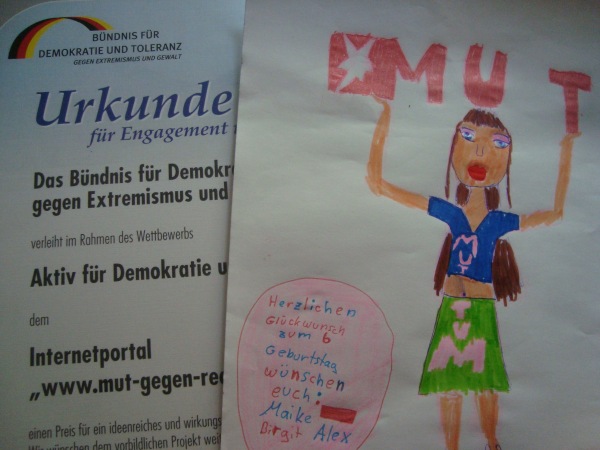 BÜNDNIS FÜR
DEMOKRATIE UND TOLERANZ
GEGEN EXTREMISMUS UND GEWALT
Urkunde
für Engagement
Das Bündnis für Demokr
gegen Extremismus und
verleiht im Rahmen des Wettbewerbs
Aktiv für Demokratie u
dem
Internetportal
„www.mut-gegen-rec
einen Preis für ein ideenreiches und wirkungs
Wir wünschen dem vorbildlichen Projekt weit
MUT
MUT
TUM
Herzlichen
Glückwunsch
zum 6
Geburtstag
wünschen
euch:
Maike
Birgit Alex